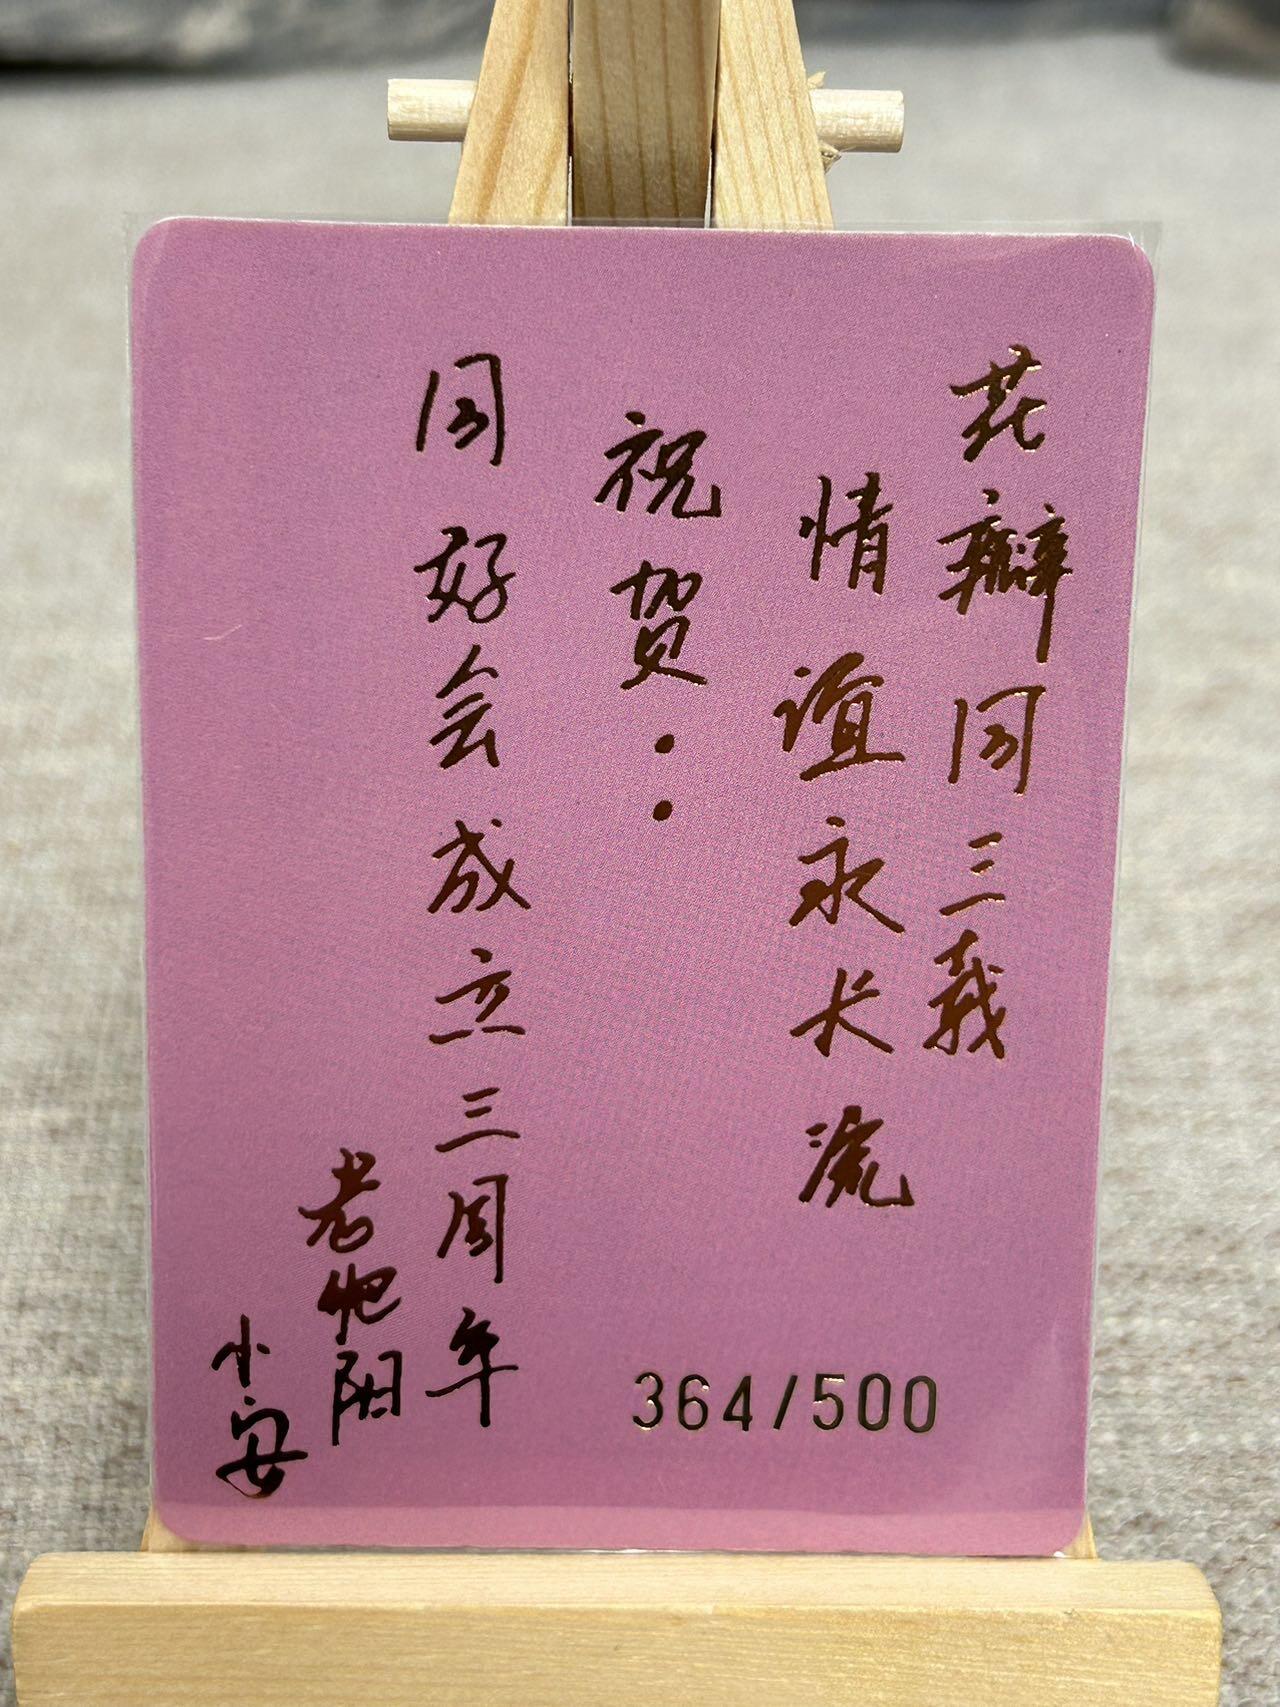 花瓣同三载
情谊永长流
祝贺：
同好会成立三周年
老肥阳
小安
364/500